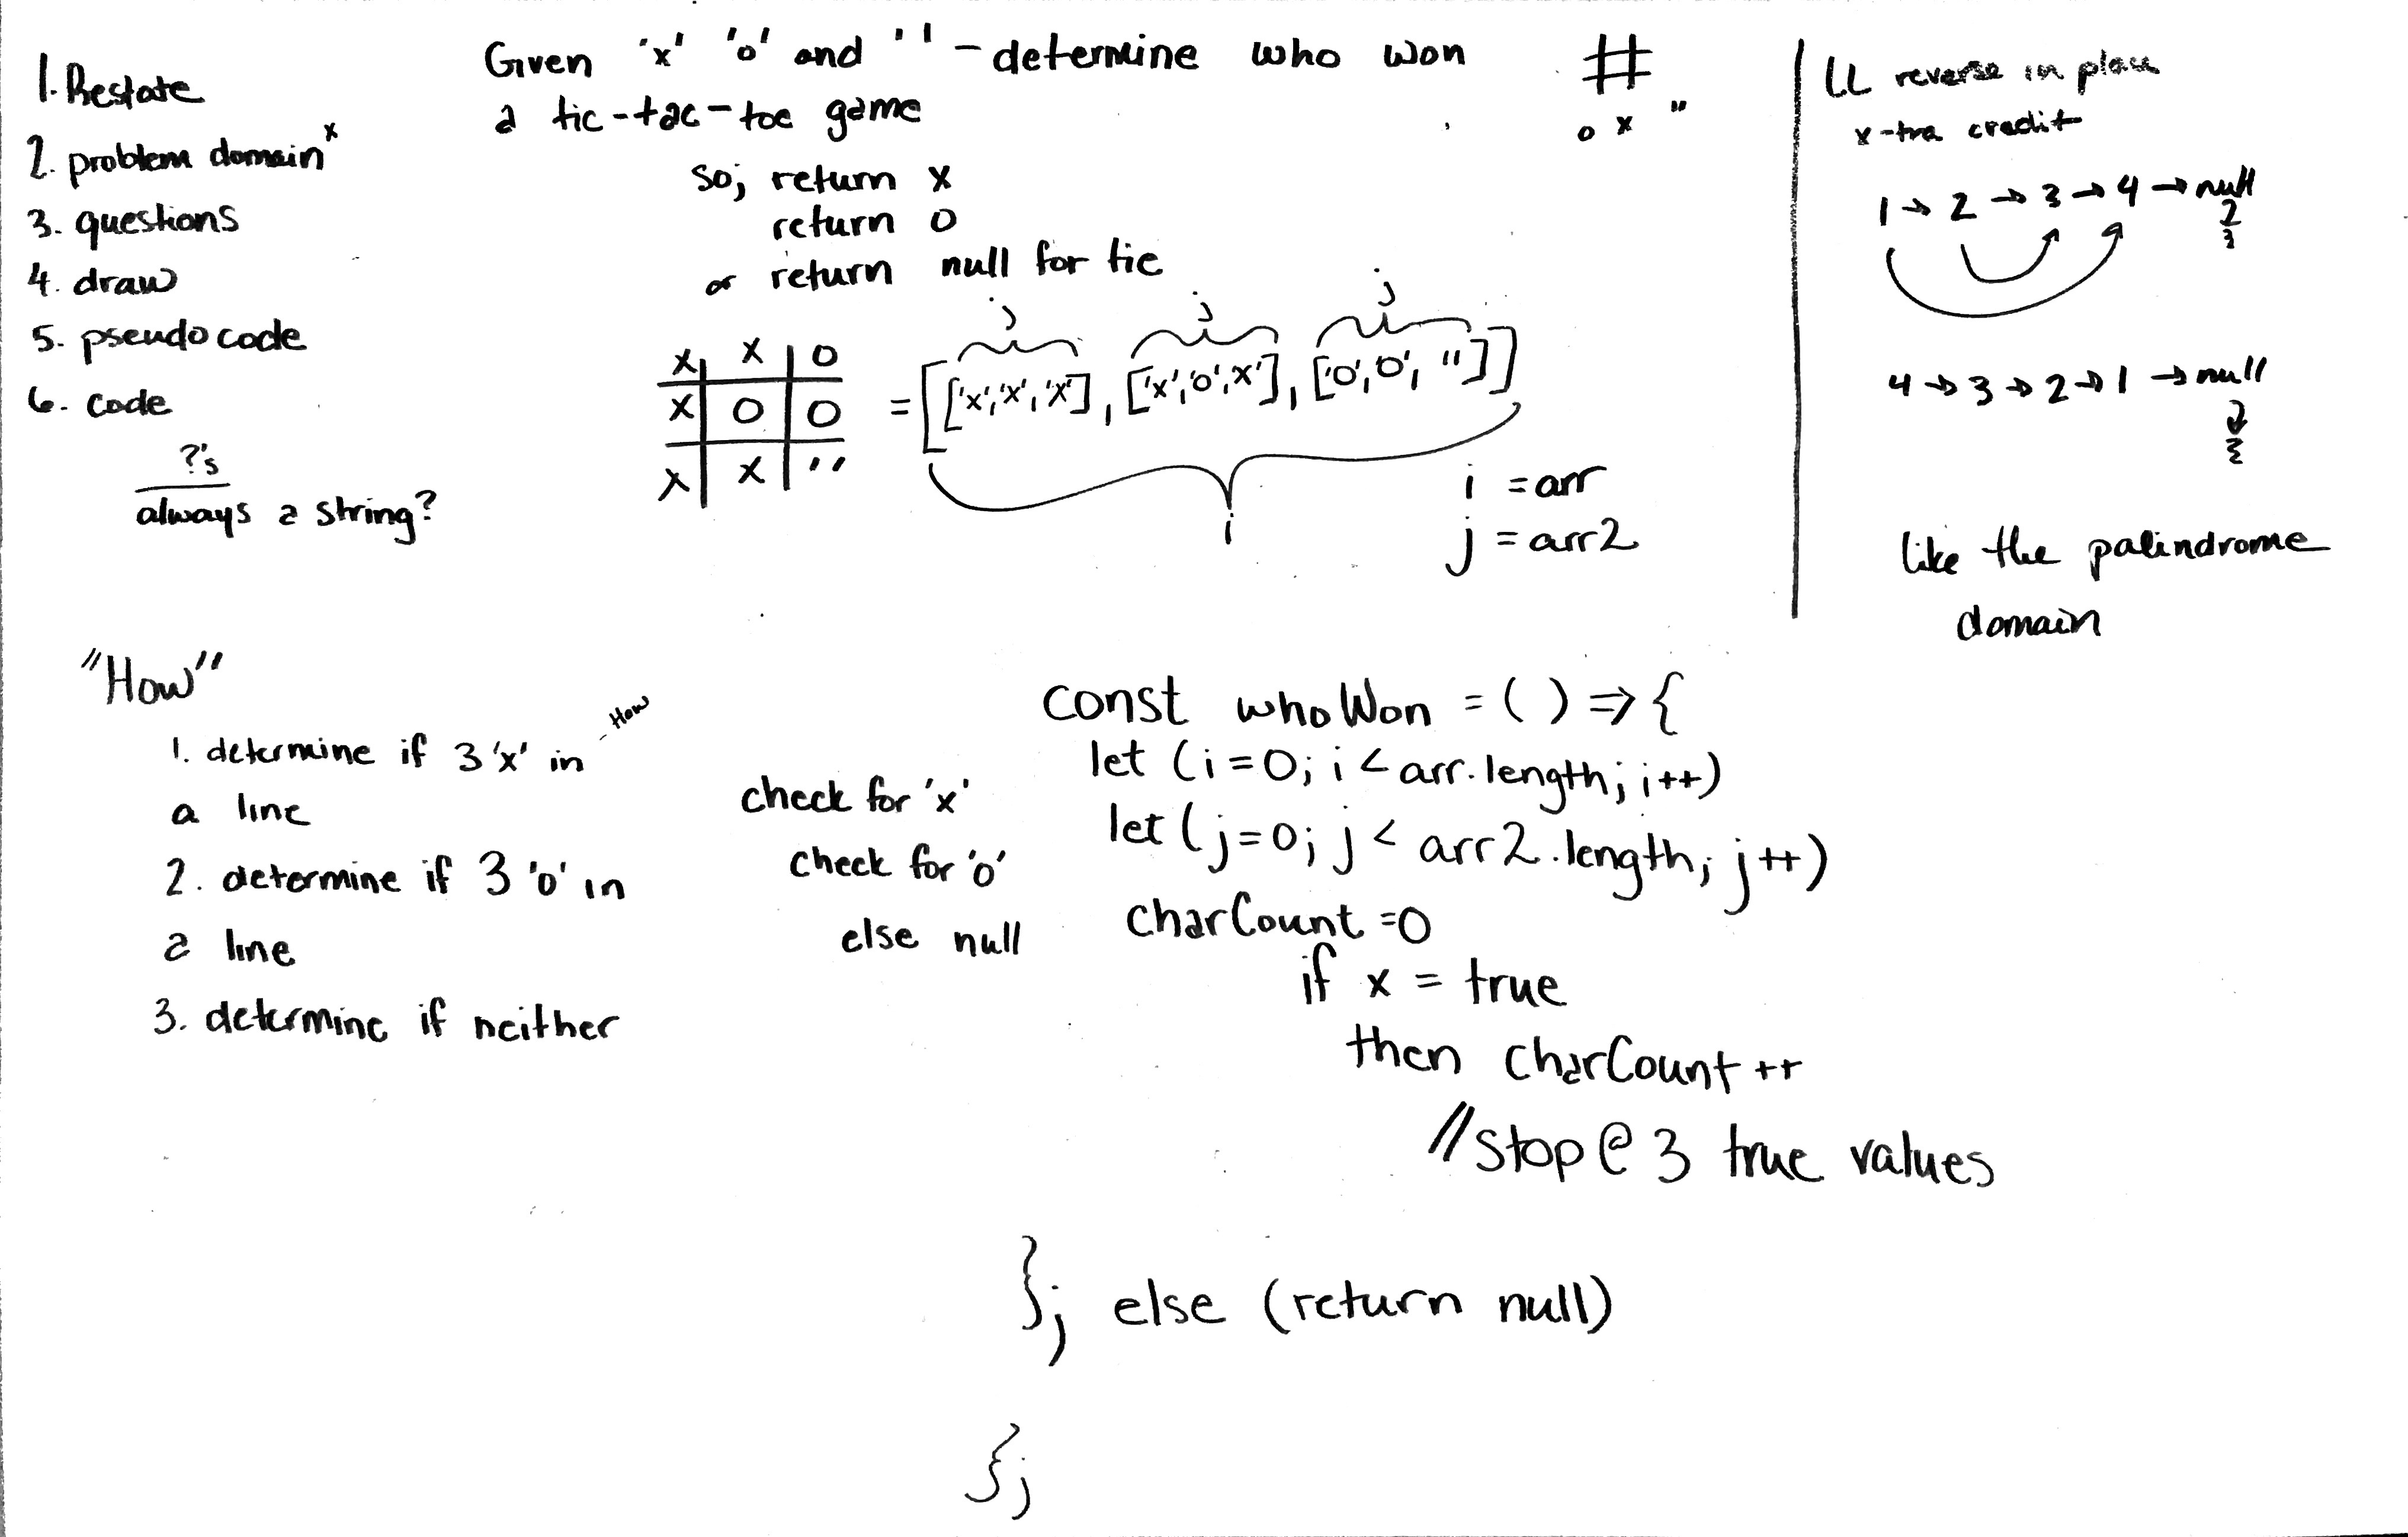 1. Restate
2. problem domain x
3. questions
4. draw
5. pseudo code
6. code
?'s
always a string?
Given 'x' 'o' and ' ' - determine who won
a tic-tac-toe game
so; return x
return o
or return null for tie
#
o x "
x x o
x o o
x x ''
= [['x','x','x'], ['x','o','x'], ['o','o', '']]
j j j
i
i = arr
j = arr2
LL reverse in place
x-tra credit
1 → 2 → 3 → 4 → null
4 → 3 → 2 → 1 → null
like the palindrome
domain
"How"
1. determine if 3 'x' in - How
a line
2. determine if 3 'o' in
a line
3. determine if neither
check for 'x'
check for 'o'
else null
const whoWon = ( ) => {
let (i=0; i < arr.length; i++)
let (j=0; j < arr2.length; j++)
charCount =0
if x = true
then charCount ++
//stop @ 3 true values
}; else (return null)
};